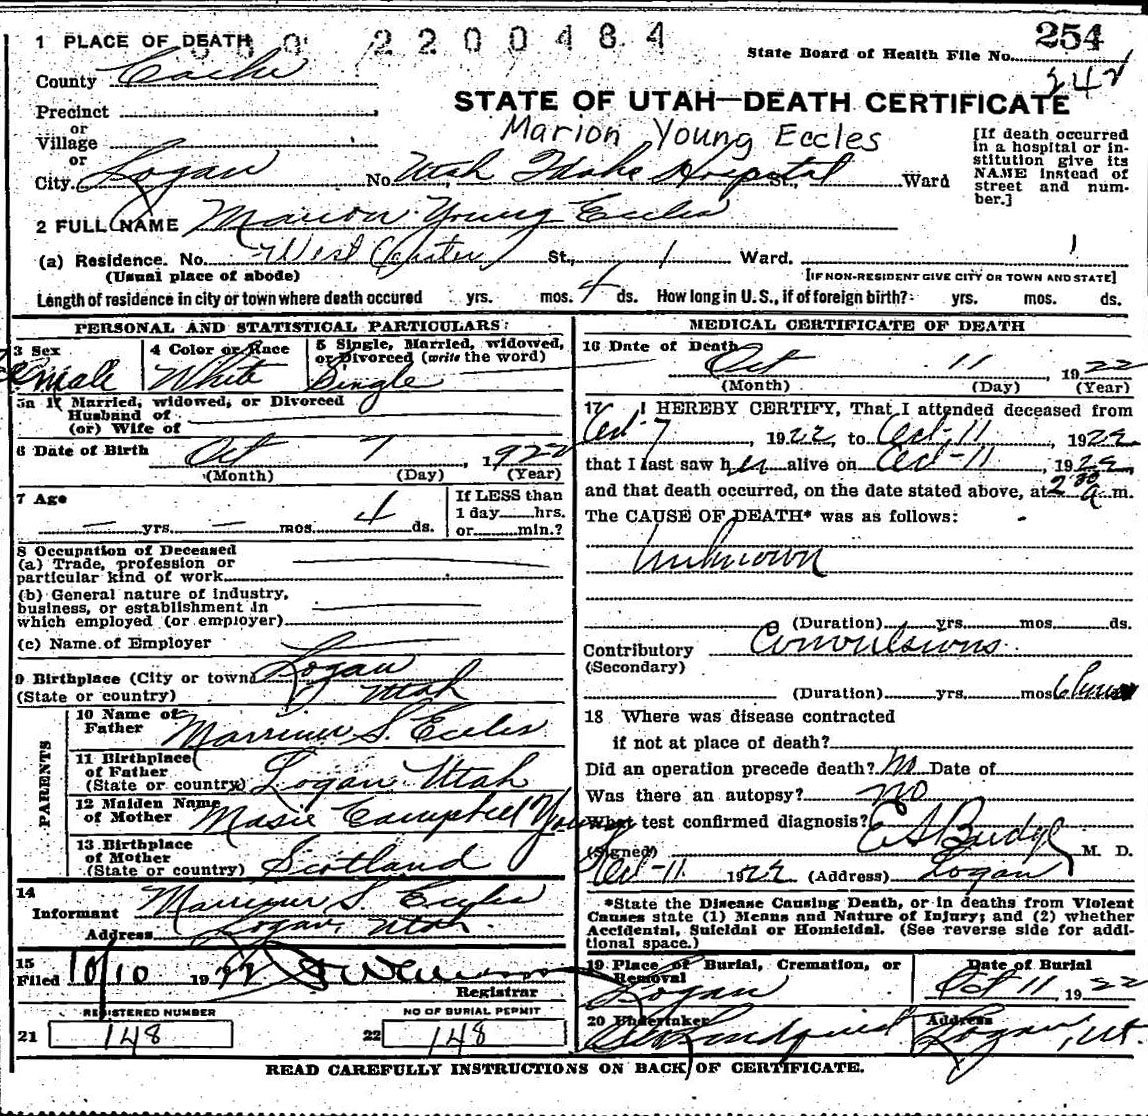 1 PLACE OF DEATH 2200484
State Board of Health File No. 254
County Cache
242
STATE OF UTAH—DEATH CERTIFICATE
Precinct
or
Village
or
Marion Young Eccles
[If death occurred in a hospital or institution give its NAME instead of street and number.]
City. Logan No. Utah Idaho Hospital St., Ward
2 FULL NAME Marion Young Eccles
(a) Residence. No. West Center St., 1 Ward. 1
(Usual place of abode) [IF NON-RESIDENT GIVE CITY OR TOWN AND STATE]
Length of residence in city or town where death occured yrs. mos. 4 ds. How long in U. S., if of foreign birth? yrs. mos. ds.
PERSONAL AND STATISTICAL PARTICULARS:
3 Sex 4 Color or Race 5 Single, Married, widowed,
or Divorced (write the word)
Female White Single
5a If Married, widowed, or Divorced
Husband of
(or) Wife of
6 Date of Birth Oct 7, 1922
(Month) (Day) (Year)
7 Age If LESS than
1 day hrs.
— yrs. — mos. 4 ds. or min.?
8 Occupation of Deceased
(a) Trade, profession or
particular kind of work
(b) General nature of industry,
business, or establishment in
which employed (or employer)
(c) Name of Employer
9 Birthplace (City or town) Logan
(State or country) Utah
PARENTS
10 Name of
Father Marriner S. Eccles
11 Birthplace
of Father
(State or country) Logan Utah
12 Maiden Name
of Mother Masie Campbell Young
13 Birthplace
of Mother
(State or country) Scotland
14
Informant Marriner S. Eccles
Address Logan, Utah.
15
Filed 10/10 1922
Registrar
REGISTERED NUMBER NO OF BURIAL PERMIT
21 148 22 148
MEDICAL CERTIFICATE OF DEATH
16 Date of Death
Oct 11, 1922
(Month) (Day) (Year)
17 I HEREBY CERTIFY, That I attended deceased from
Oct-7, 1922, to Oct-11, 1922
that I last saw her alive on Oct-11, 1922,
and that death occurred, on the date stated above, at 2 30 a m.
The CAUSE OF DEATH* was as follows:
Unknown
(Duration) yrs. mos. ds.
Contributory Convulsions
(Secondary)
(Duration) yrs. mos.
18 Where was disease contracted
if not at place of death?
Did an operation precede death? No Date of
Was there an autopsy? no
What test confirmed diagnosis?
(Signed) M. D.
Oct-11 1922 (Address) Logan
*State the Disease Causing Death, or in deaths from Violent
Causes state (1) Means and Nature of Injury; and (2) whether
Accidental, Suicidal or Homicidal. (See reverse side for addi-
tional space.)
19 Place of Burial, Cremation, or Date of Burial
Removal
Logan Oct 11 1922
20 Undertaker Address
Lindquist Logan, Ut.
READ CAREFULLY INSTRUCTIONS ON BACK OF CERTIFICATE.